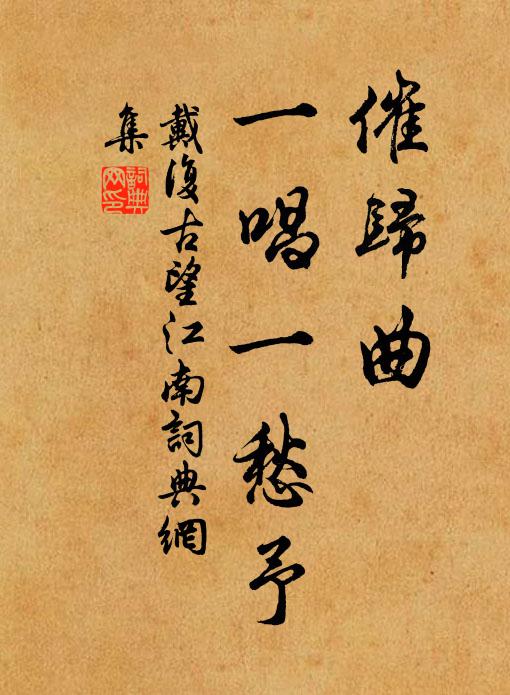 催歸曲
一唱一愁予
戴復古望江南詞典網
集
詞典網印